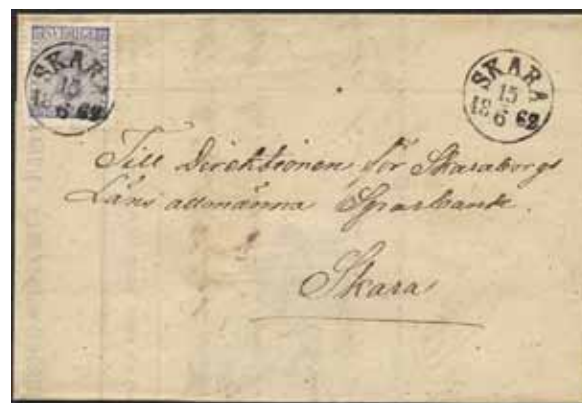 SVERIGE
SKARA
15
18 6 62
SKARA
15
18 6 62
Till Direktionen för Skaraborgs
Läns allmänna Sparbank.
Skara